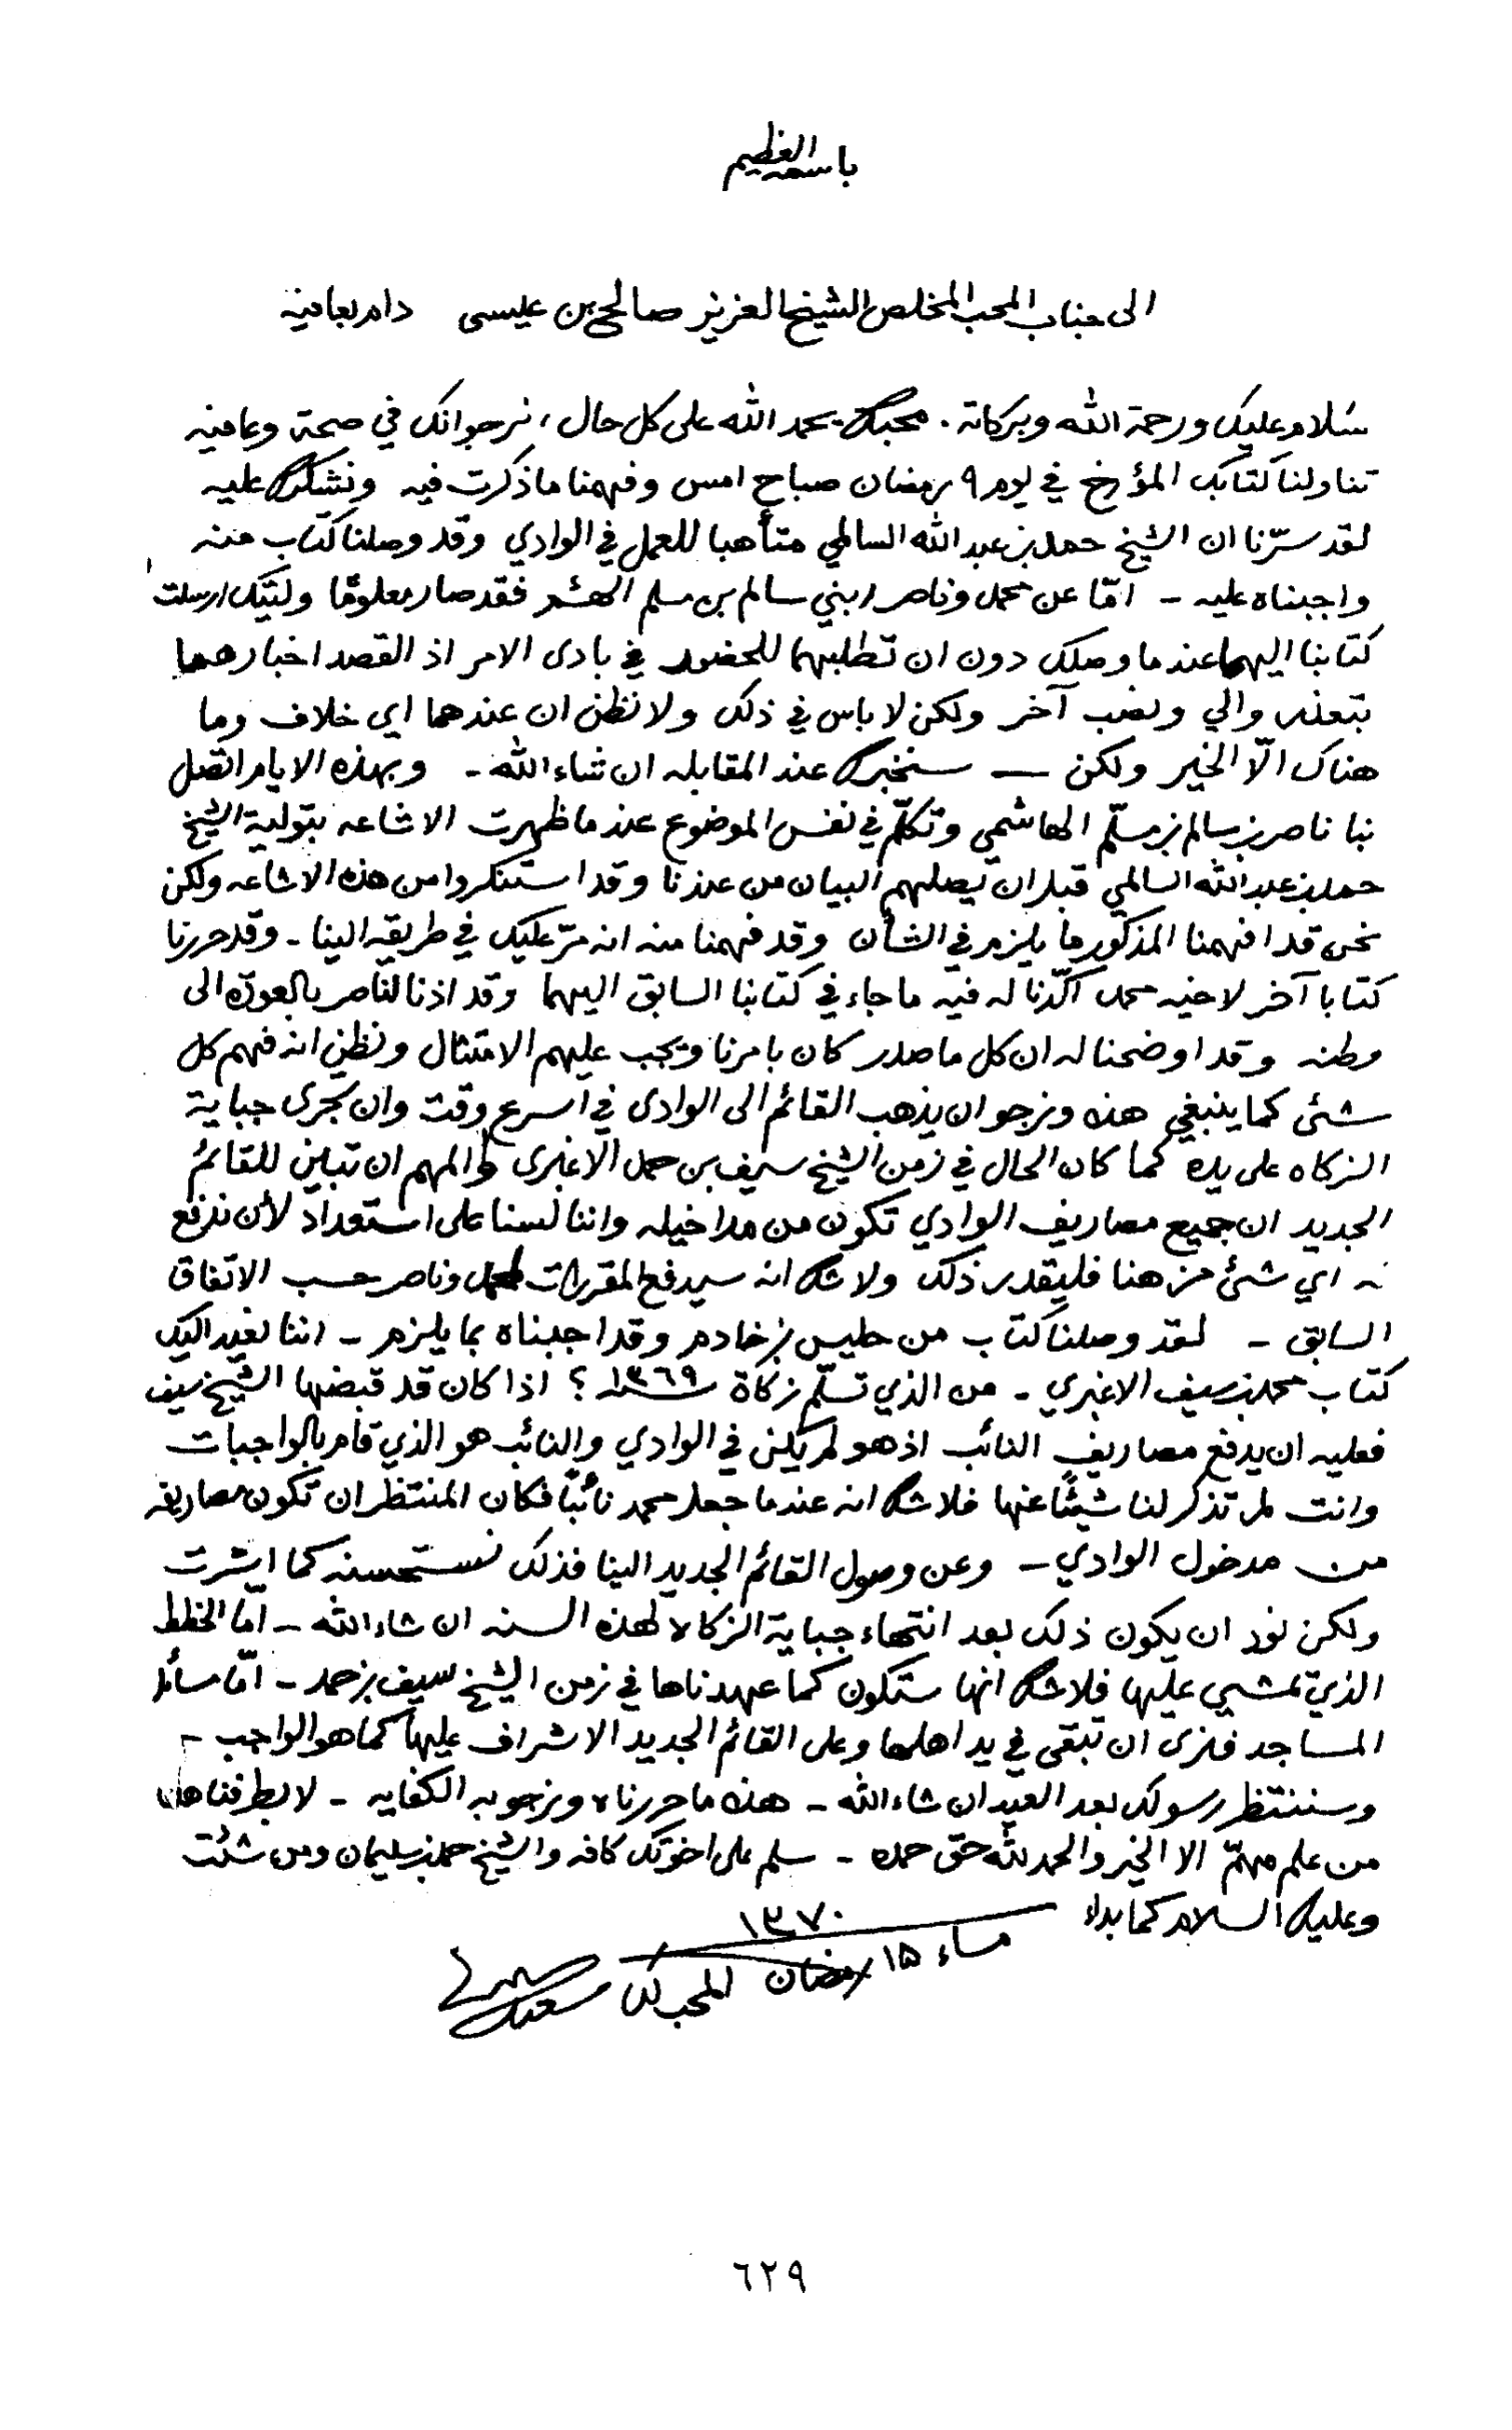 باسمه العظيم
الى جناب المحب المخلص الشيخ العزيز صالح بن عيسى دام بعافيه
سلام عليك ورحمة الله وبركاته . محبك بحمد الله على كل حال ، نرجو انك في صحة وعافيه
تناولنا كتابك المؤرخ في يوم ٩ رمضان صباح امس وفهمنا ما ذكرت فيه ونشكرك عليه
لقد سرّنا ان الشيخ حمد بن عبد الله السالمي متأهبا للعمل في الوادي وقد وصلنا كتاب منه
واجبناه عليه - امّا عن محمد وناصر ابني سالم بن مسلم الهشم فقد صار معلومًا وليتك ارسلت
كتابنا اليهما عندما وصلك دون ان تطلبهما للحضور في بادى الامر اذ القصد اخبارهما
والي ونصب آخر ولكن لا باس في ذلك ولا نظن ان عندهما اي خلاف وما
هناك الّا الخير ولكن — سنخبرك عند المقابله ان شاء الله - وبهذه الايام اتصل
بنا ناصر بن سالم بن مسلّم الهاشمي وتكلّم في نفس الموضوع عندما ظهرت الاشاعه بتولية الشيخ
حمد بن عبد الله السالمي قبل ان يصلهم البيان من عندنا وقد استنكروا من هذه الاشاعه ولكن
نحن قد افهمنا المذكور ما يلزم في الشأن وقد فهمنا منه انه مرّ عليك في طريقه الينا - وقد حررنا
كتابا آخر لاخيه محمد اكّدنا له فيه ما جاء في كتابنا السابق اليهما وقد اذنا لناصر بالعوده الى
وطنه وقد اوضحنا له ان كل ما صدر كان بامرنا ويجب عليهم الامتثال ونظن انه فهم كل
شئ كما ينبغي هذه ونرجو ان يذهب القائم الى الوادى في اسرع وقت وان تجرى جباية
الزكاه على يده كما كان الحال في زمن الشيخ سيف بن حمد الاغبرى والمهم ان تبين للقائم
الجديد ان جميع مصاريف الوادي تكون من مداخيله واننا لسنا على استعداد لأن ندفع
له اي شئ من هنا فليقدر ذلك ولا شك انه سيدفع المقررات لمحمد وناصر حسب الاتفاق
السابق - لقد وصلنا كتاب من حليس بن خادم وقد اجبناه بما يلزم - اننا نعيد اليك
كتاب محمد بن سيف الاغبري - من الذي تسلّم زكاة سنة ١٣٦٩ ؟ اذا كان قد قبضها الشيخ سيف
فعليه ان يدفع مصاريف النائب اذ هو لم يكن في الوادي والنائب هو الذي قام بالواجبات
وانت لم تذكر لنا شيئًا عنها فلا شك انه عندما جعل محمد نائبًا فكان المنتظر ان تكون مصاريفه
من مدخول الوادي - وعن وصول القائم الجديد الينا فذلك نستحسنه كما اشرت
ولكن نود ان يكون ذلك بعد انتهاء جباية الزكاة لهذه السنه ان شاء الله - امّا الخطط
الذي تمشي عليها فلا شك انها ستكون كما عهدناها في زمن الشيخ سيف بن حمد - امّا مسائل
المساجد فنرى ان تبقى في يد اهلها وعلى القائم الجديد الاشراف عليها كما هو الواجب -
وسننتظر رسولك بعد العيد ان شاء الله - هذه ما حررناه ونرجو به الكفايه - لا بطرفنا هنا
من علم مهمّ الا الخير والحمد لله حق حمده - سلم على اخوتك كافه والشيخ حمد بن سليمان ومن شئت
وعليك السلام كما بدا
مساء ١٥ رمضان ١٣٧٠
المحب لك سعيد
٦٢٩